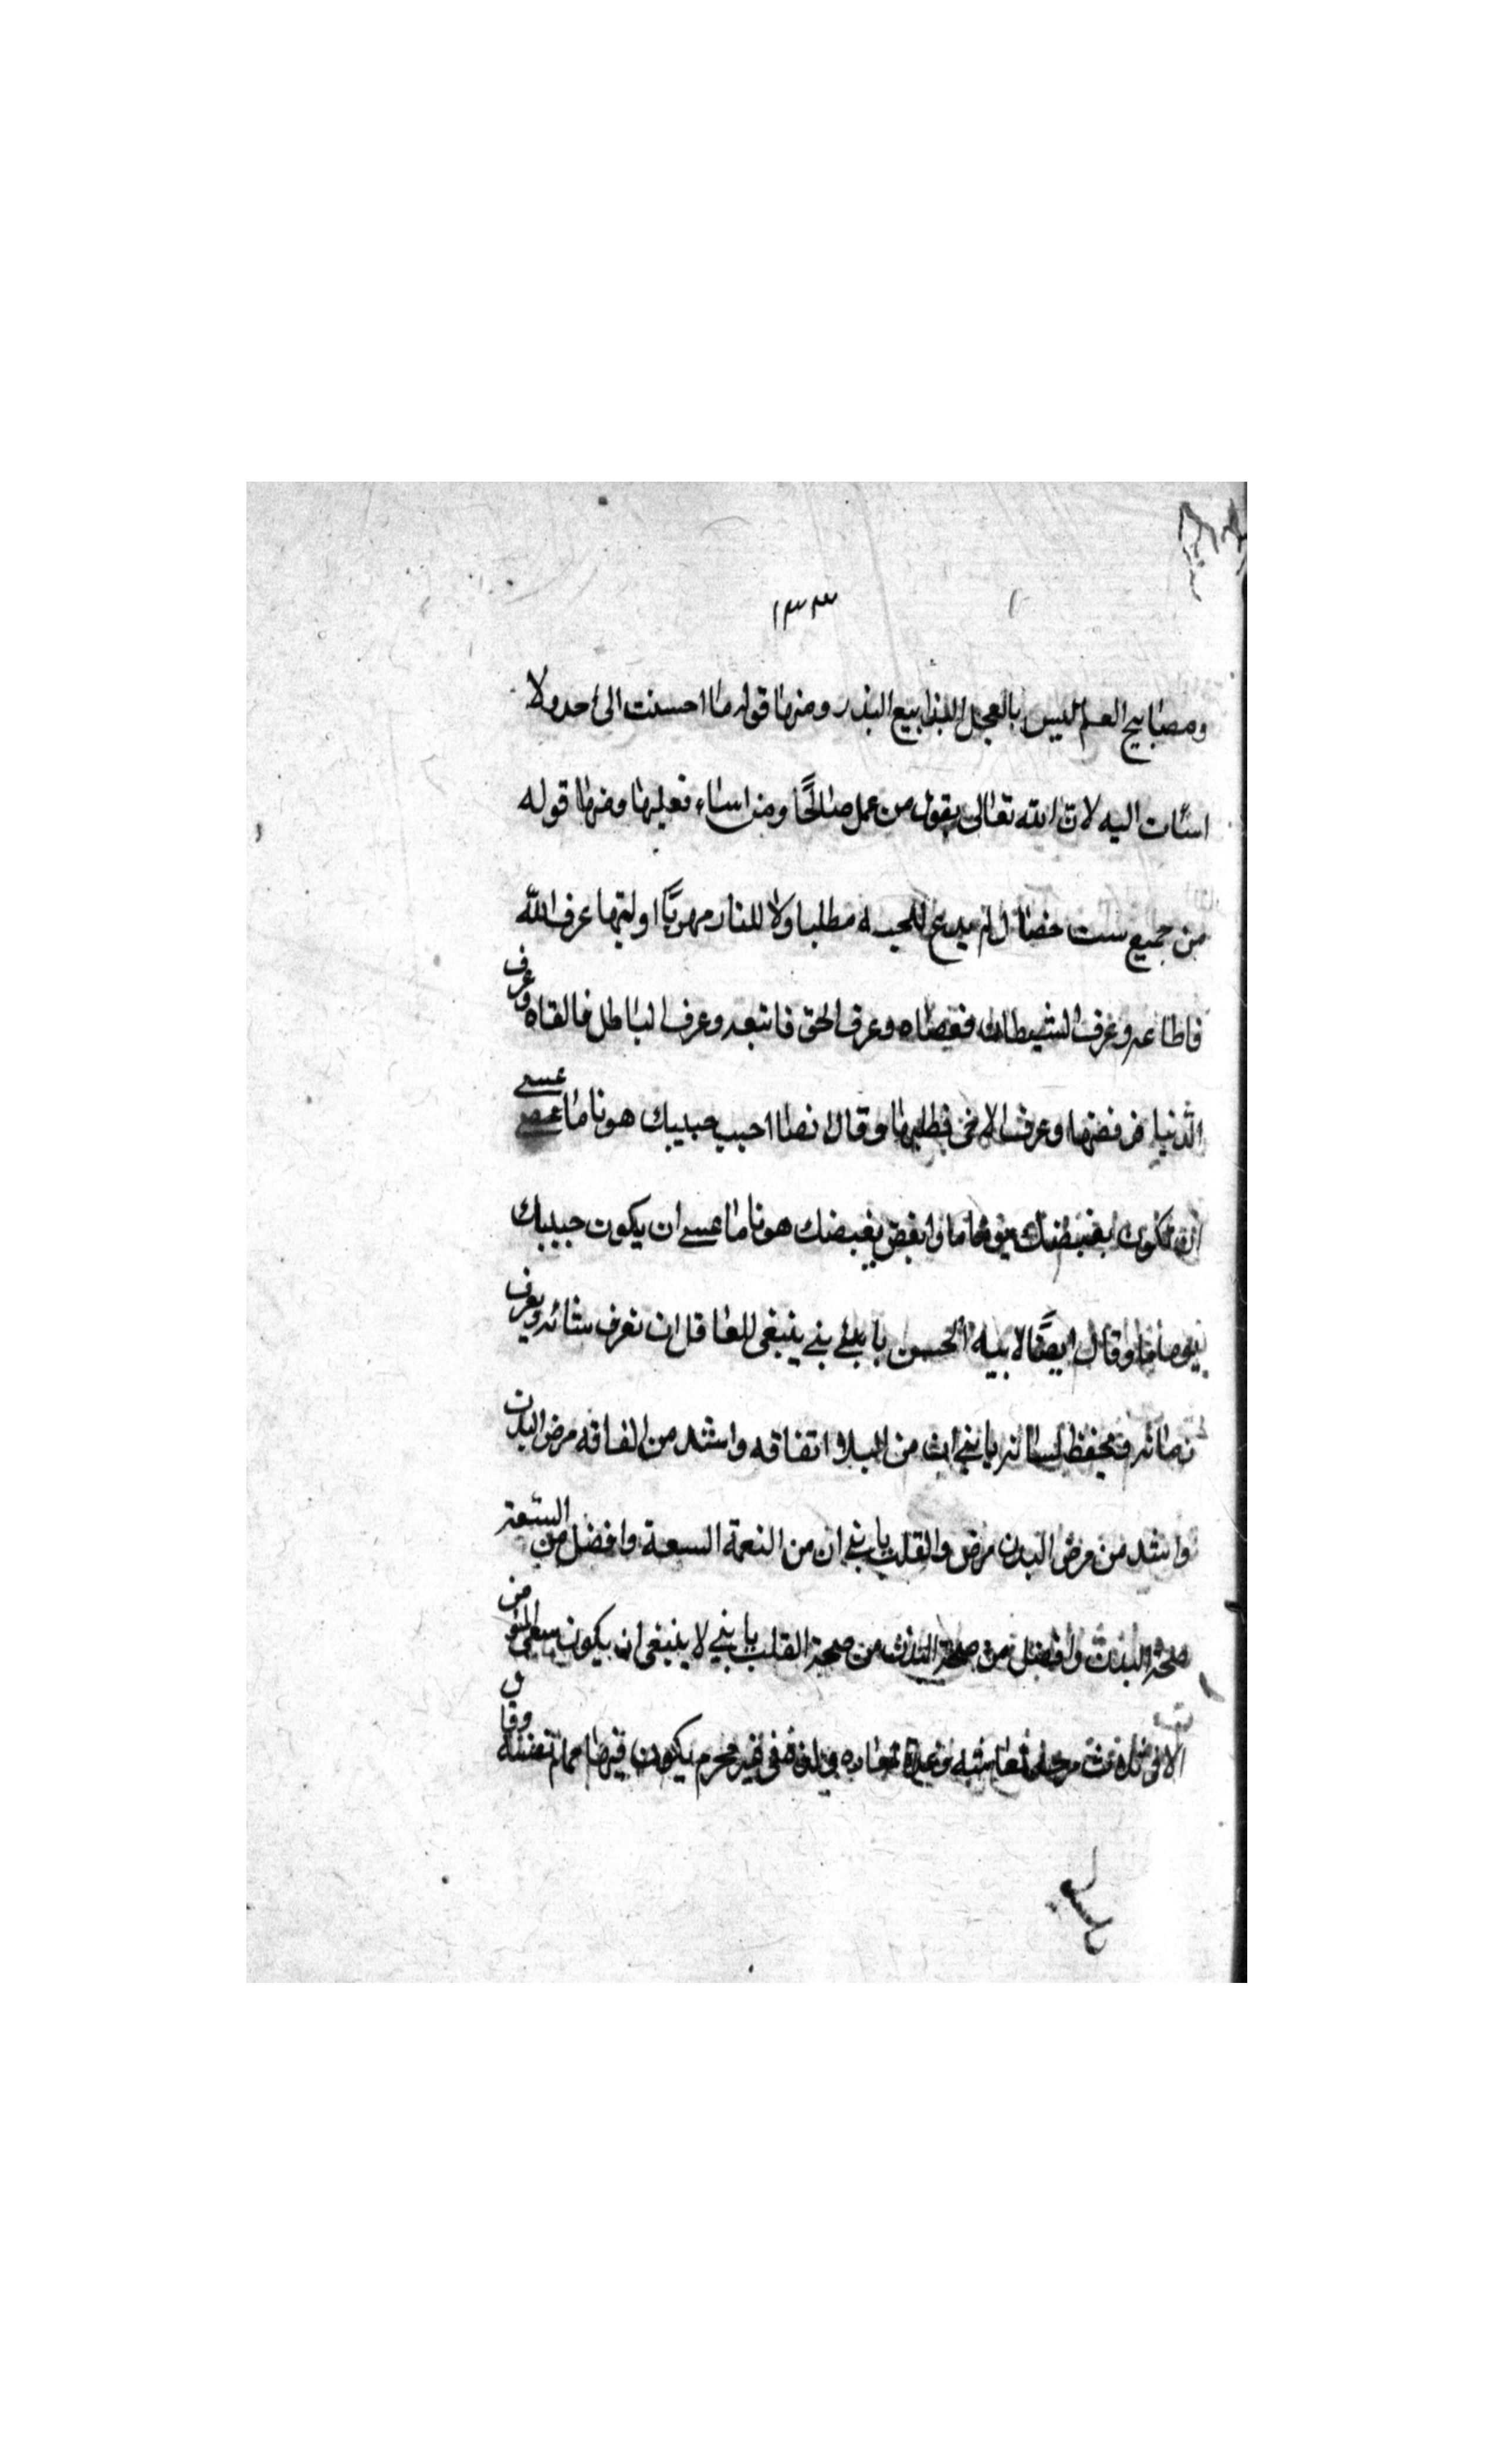 ١٣٣
ومصابيح العلم ليس بالعجل البذابيع البذر ومنها قوله ما احسنت الى احد ولا
اسئات اليه لان الله تعالى يقول من عمل صالحًا ومن اساء فعليها ومنها قوله
من جميع ست خصال لم يدع للجنه مطلبا ولا للنار مهربًا اوليها عرف الله
فاطاعه وعرف الشيطان فعصاه وعرف الحق فاتبعه وعرف الباطل فالقاه وعرف
الدنيا فرفضها وعرف الاخرى فطلبها وقال ايضا احبب حبيبك هونا ما عسى
ان يكون بغيضك يوما ما وابغض بغيضك هونا ما عسى ان يكون حبيبك
يوما ما وقال ايضًا لابنه الحسن يا بنى ينبغى للعاقل ان تعرف شانه ويعرف
زمانه ويحفظ لسانه يا بنى ان من البلا اتفاقه واشد من الفاقه مرض البدن
واشد من مرض البدن مرض والقلب يا بنى ان من النعمة السعة وافضل من السعة
صحة البدن وافضل من صحة البدن من صحة القلب يا بنى لا ينبغى ان يكون سعى المؤمن
الا فى ثلاث فى غير محرم يكون فيها مما
وقال